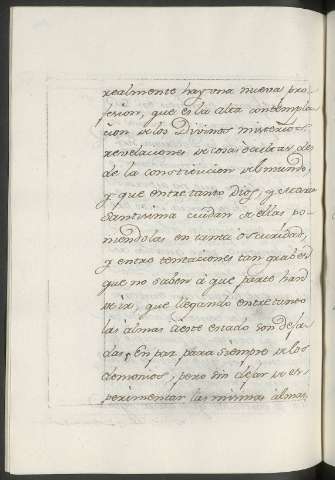 realmente hay una nueva pro-
fesion, que es la alta contempla
cion de los Divinos misterios,
revelaciones de cosas ocultas des
de la construccion del mundo,
y que entre tanto Dios, y Maria
Santisima cuidan de ellas po-
niendolas en tanta oscuridad,
y entre tentaciones tan graves
que no saben à que parte han
de ir, que llegando entretanto
las almas à este estado son deja-
das, en paz para siempre de los
demonios, pero sin dejar de es-
perimentar las mismas almas